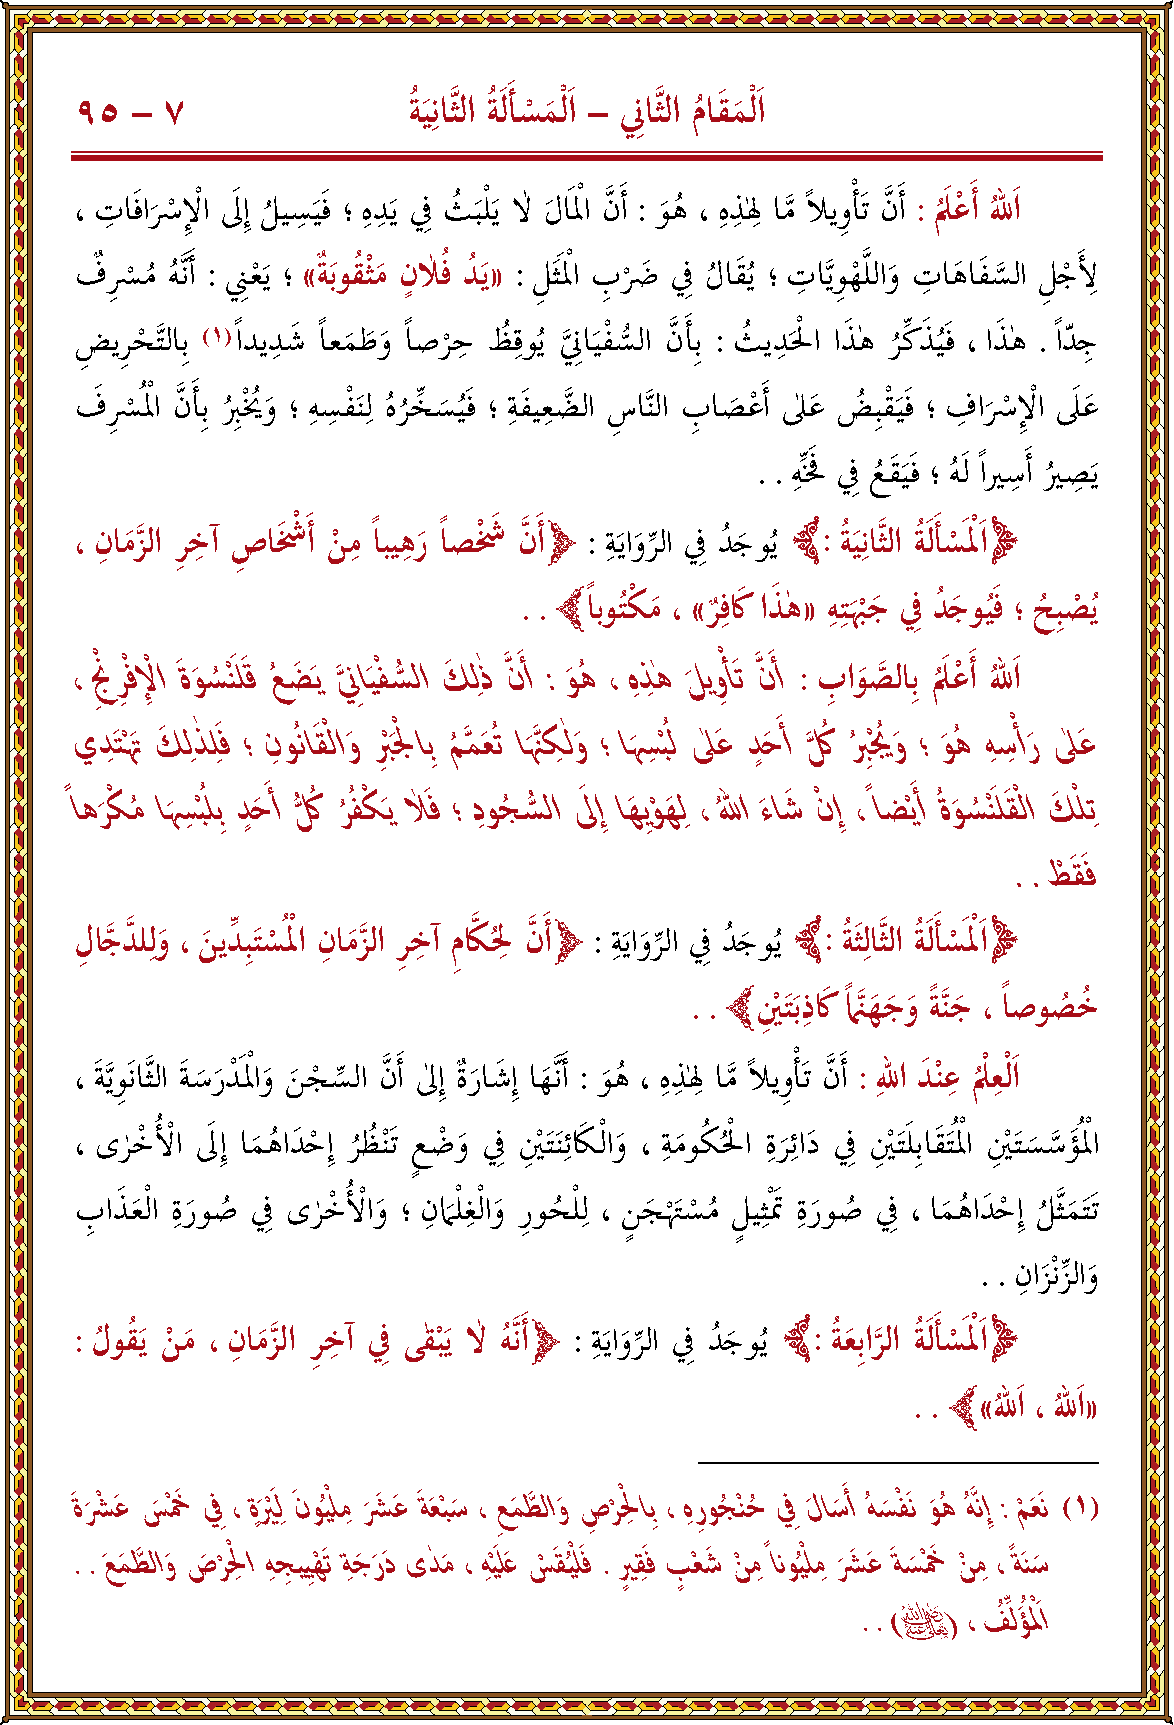 اَلْمَقَامُ الثَّانِي – اَلْمَسْأَلَةُ الثَّانِيَةُ ٧ – ٩٥
اَللهُ أَعْلَمُ : أَنَّ تَأْوِيلاً مَّا لِهٰذِهِ ، هُوَ : أَنَّ الْمَالَ لاٰ يَلْبَثُ فِي يَدِهِ ؛ فَيَسِيلُ إِلَى الْإِسْرَافَاتِ ،
لِأَجْلِ السَّفَاهَاتِ وَاللَّهْوِيَّاتِ ؛ يُقَالُ فِي ضَرْبِ الْمَثَلِ : «يَدُ فُلاٰنٍ مَثْقُوبَةٌ» ؛ يَعْنِي : أَنَّهُ مُسْرِفٌ
جِدّاً . هٰذَا ، فَيُذَكِّرُ هٰذَا الْحَدِيثُ : بِأَنَّ السُّفْيَانِيَّ يُوقِظُ حِرْصاً وَطَمَعاً شَدِيداً(١) بِالتَّحْرِيضِ
عَلَى الْإِسْرَافِ ؛ فَيَقْبِضُ عَلىٰ أَعْصَابِ النَّاسِ الضَّعِيفَةِ ؛ فَيُسَخِّرُهُ لِنَفْسِهِ ؛ وَيُخْبِرُ بِأَنَّ الْمُسْرِفَ
يَصِيرُ أَسِيراً لَهُ ؛ فَيَقَعُ فِي فَخِّهِ . .
﴿اَلْمَسْأَلَةُ الثَّانِيَةُ :﴾ يُوجَدُ فِي الرِّوَايَةِ : ﴿أَنَّ شَخْصاً رَهِيباً مِنْ أَشْخَاصِ آخِرِ الزَّمَانِ ،
يُصْبِحُ ؛ فَيُوجَدُ فِي جَبْهَتِهِ «هٰذَا كَافِرٌ» ، مَكْتُوباً﴾ . .
اَللهُ أَعْلَمُ بِالصَّوَابِ : أَنَّ تَأْوِيلَ هٰذِهِ ، هُوَ : أَنَّ ذٰلِكَ السُّفْيَانِيَّ يَضَعُ قَلَنْسُوَةَ الْإِفْرِنْجِ ،
عَلىٰ رَأْسِهِ هُوَ ؛ وَيُجْبِرُ كُلَّ أَحَدٍ عَلىٰ لُبْسِهَا ؛ وَلٰكِنَّهَا تُعَمَّمُ بِالْجَبْرِ وَالْقَانُونِ ؛ فَلِذٰلِكَ تَهْتَدِي
تِلْكَ الْقَلَنْسُوَةُ أَيْضاً ، إِنْ شَاءَ اللهُ ، لِهَوْيِهَا إِلَى السُّجُودِ ؛ فَلاٰ يَكْفُرُ كُلُّ أَحَدٍ بِلُبْسِهَا مُكْرَهاً
فَقَطْ . .
﴿اَلْمَسْأَلَةُ الثَّالِثَةُ :﴾ يُوجَدُ فِي الرِّوَايَةِ : ﴿أَنَّ لِحُكَّامِ آخِرِ الزَّمَانِ الْمُسْتَبِدِّينَ ، وَلِلدَّجَّالِ
خُصُوصاً ، جَنَّةً وَجَهَنَّماً كَاذِبَتَيْنِ﴾ . .
اَلْعِلْمُ عِنْدَ اللهِ : أَنَّ تَأْوِيلاً مَّا لِهٰذِهِ ، هُوَ : أَنَّهَا إِشَارَةٌ إِلىٰ أَنَّ السِّجْنَ وَالْمَدْرَسَةَ الثَّانَوِيَّةَ ،
الْمُؤَسَّسَتَيْنِ الْمُتَقَابِلَتَيْنِ فِي دَائِرَةِ الْحُكُومَةِ ، وَالْكَائِنَتَيْنِ فِي وَضْعٍ تَنْظُرُ إِحْدَاهُمَا إِلَى الْأُخْرٰى ،
تَتَمَثَّلُ إِحْدَاهُمَا ، فِي صُورَةِ تَمْثِيلٍ مُسْتَهْجَنٍ ، لِلْحُورِ وَالْغِلْمَانِ ؛ وَالْأُخْرٰى فِي صُورَةِ الْعَذَابِ
وَالزِّنْزَانِ . .
﴿اَلْمَسْأَلَةُ الرَّابِعَةُ :﴾ يُوجَدُ فِي الرِّوَايَةِ : ﴿أَنَّهُ لاٰ يَبْقٰى فِي آخِرِ الزَّمَانِ ، مَنْ يَقُولُ :
«اَللهُ ، اَللهُ»﴾ . .
(١) نَعَمْ : إِنَّهُ هُوَ نَفْسُهُ أَسَالَ فِي حُنْجُورِهِ ، بِالْحِرْصِ وَالطَّمَعِ ، سَبْعَةَ عَشَرَ مِلْيُونَ لَيْرَةٍ ، فِي خَمْسَ عَشْرَةَ
سَنَةً ، مِنْ خَمْسَةَ عَشَرَ مِلْيُوناً مِنْ شَعْبٍ فَقِيرٍ . فَلْيُقَسْ عَلَيْهِ ، مَدٰى دَرَجَةِ تَهْيِيجِهِ الْحِرْصَ وَالطَّمَعَ . .
اَلْمُؤَلِّفُ ، (رضي الله تعالى عنه) . .